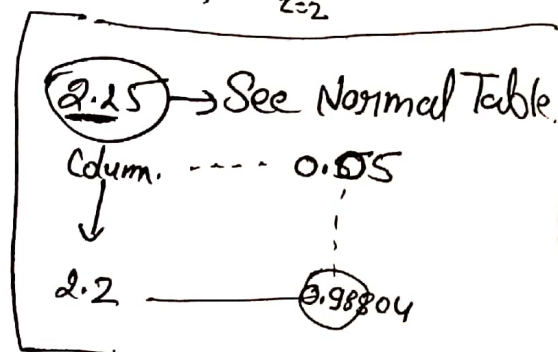 z=2
2.25 → See Normal Table.
Column. ---- 0.05
2.2 —— 0.98804